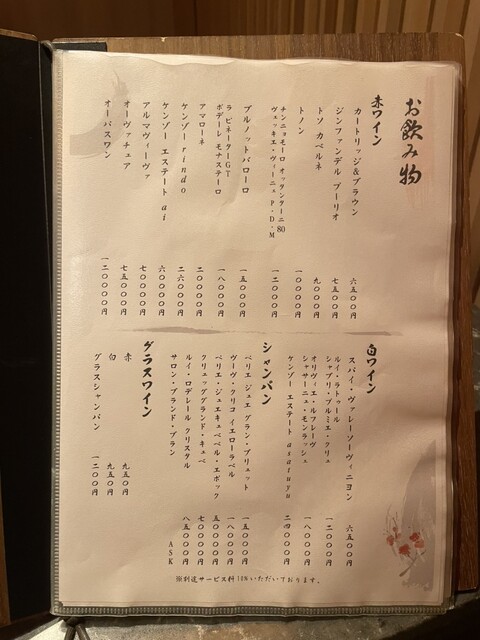 お飲み物
赤ワイン
カートリッジ&ブラウン 六五〇〇円
ジンファンデル プーリオ 七五〇〇円
トソ カベルネ 九〇〇〇円
トノン 一〇〇〇〇円
チンニョモーロ オッタンターニ 80
ヴェッキエ・ヴィーニェ P.D.M 一二〇〇〇円
ブルノットバローロ 一五〇〇〇円
ラ ピネーターGT
ボデーレ モナステーロ 一八〇〇〇円
アマローネ 二〇〇〇〇円
ケンゾー rindo 二六〇〇〇円
ケンゾー エステート ai 六〇〇〇〇円
アルマヴィーヴァ 七〇〇〇〇円
オーヴァチュア 七五〇〇〇円
オーパスワン 一二〇〇〇〇円
白ワイン
スパイ・ヴァレーソーヴィニヨン 六五〇〇円
ルイ・ラトゥール
シャブリ・プルミエ・クリュ 一二〇〇〇円
オリヴィエ・ルフレーヴ
シャサーニュ・モンラッシェ 一八〇〇〇円
ケンゾー エステート asatuyu 二四〇〇〇円
シャンパン
ペリエ ジュエ グラン・ブリュット 一五〇〇〇円
ヴーヴ・クリコ イエローラベル 一八〇〇〇円
ペリエ・ジュエキュベベル・エポック 五〇〇〇〇円
クリュッググランド・キュベ 七〇〇〇〇円
ルイ・ロデレール クリスタル 八五〇〇〇円
サロン・ブランド・ブラン ASK
グラスワイン
赤 九五〇円
白 九五〇円
グラスシャンパン 一二〇〇円
※別途サービス料10%いただいております。